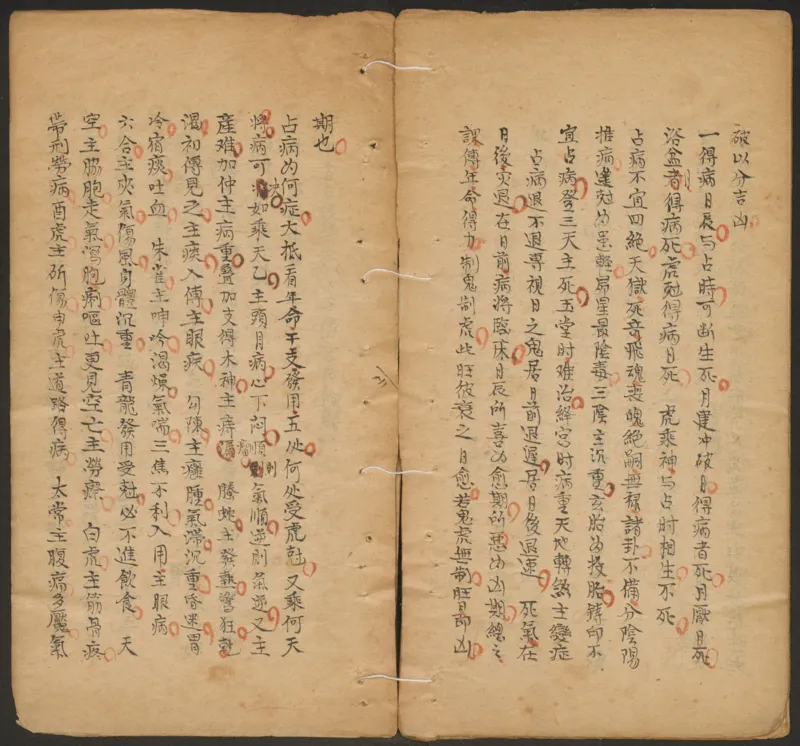 破以分吉凶
一得病日辰与占時可断生死月建冲破日得病者死月厭日死
浴盆者得病死虎尅得病日死 虎乘神与占时相生不死
占病不宜四絕天獄死奇飛魂丧魄絕嗣無禄諸卦不備分陰陽
推病逢尅为輕昴星最陰毒三陰主沉重玄胎为投胎鑄印不
宜占病登三天主死玉堂时难治絳宮时病重天地轉煞主變症
占病退不退專視日之鬼居日前退遲居日後退速 死氣在
日後灾退在日前病將臨床日辰所喜为愈期所恶为凶期總之
課傳年命得力制鬼制虎此旺彼衰之日愈若鬼虎無制旺日即凶
期也
占病为何症大抵看年命干支發用五处何处受虎尅又乘何天
將病可决如乘天乙主頭目病心下闷順則氣順逆則氣逆又主
産难加仲主病重叠加支得木神主痔漏 螣蛇主發熱驚狂乾
渴初傳見之主痰入傳主眼疾 勾陳主癰腫氣滯沉重昏迷胃
冷宿痰吐血 朱雀主呻吟渴燥氣喘三焦不利入用主眼病
六合主灾氣傷風身體沉重 青龍發用受尅必不進飲食 天
空主脇胞走氣瀉胞痢嘔吐更見空亡主勞瘵 白虎主筋骨疼
帶刑勞病酉虎主斫傷申虎主道路得病 太常主腹痛多魘氣